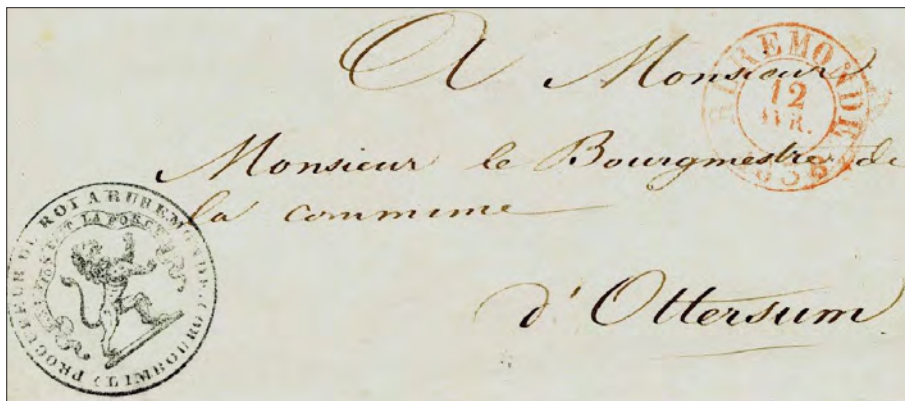 A Monsieur
Monsieur le Bourgmestre de
la commune
d'Ottersum
RUREMONDE
12
AVR.
1836
PROCUREUR DU ROI A RUREMONDE (LIMBOURG)
L'UNION FAIT LA FORCE